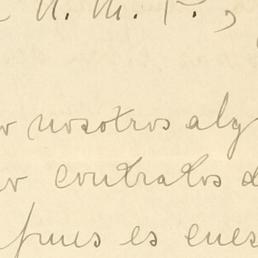 N. M. P.,
o nosotros alg
o contratos d
pues es cues